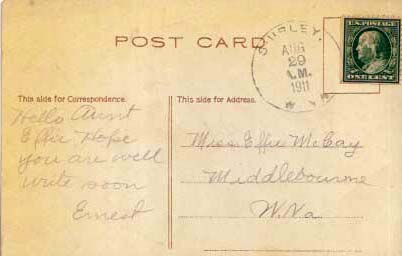 POST CARD
SHIRLEY.
AUG
29
A.M.
1911
W. VA
U.S. POSTAGE
ONE CENT
This side for Correspondence.
Hello Aunt
Effie Hope
you are well
write soon
Ernest
This side for Address.
Miss Effie McCay
Middlebourne
W. Va